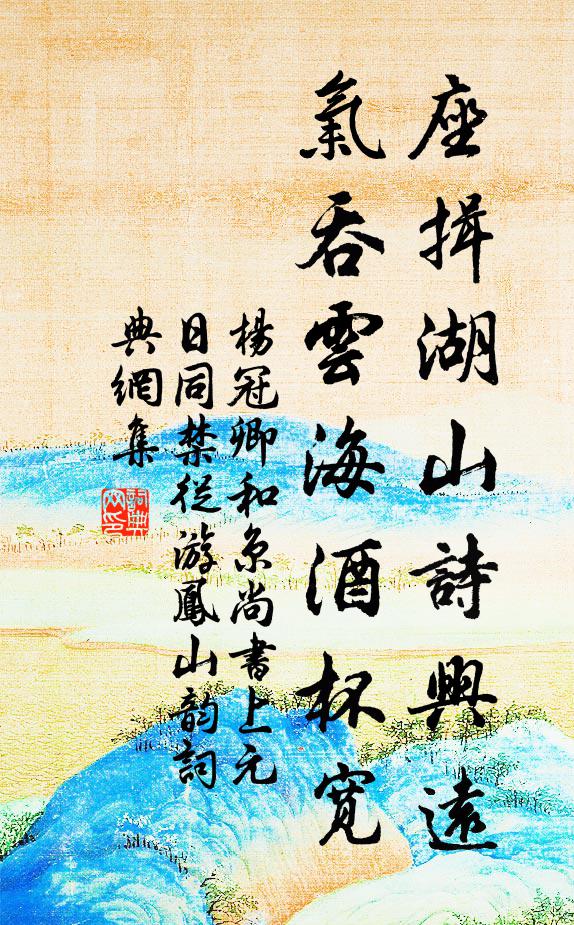 座揖湖山詩興遠
氣吞雲海酒杯寬
楊冠卿和京尚書上元
日同禁從游鳳山韵詞
典網集
詞典